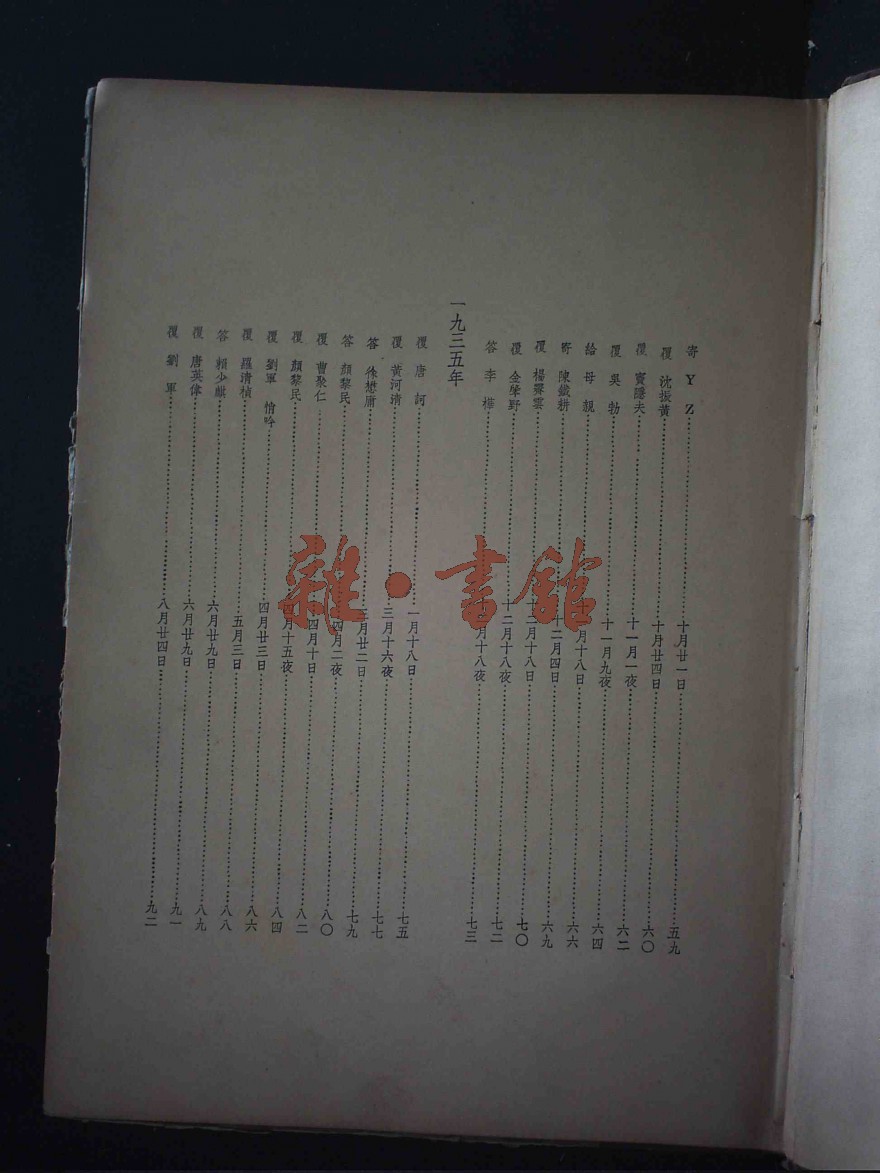 寄 Y Z 十月廿一日 五九
覆 沈振黃 十月廿四日 六〇
覆 竇隱夫 十一月一夜 六二
覆 吳勃 十一月九夜 六四
給 母親 月十八日 六六
寄 陳鐵耕 十二月四日 六九
覆 楊霽雲 十二月十八日 七〇
覆 金肇野 十二月十八夜 七二
答 李樺 月十八夜 七三
一九三五年
覆 唐訶 一月十八日 七五
覆 黃河清 三月十六夜 七七
答 徐懋庸 月廿二日 七九
答 顏黎民 四月二夜 八〇
覆 曹聚仁 四月十日 八二
覆 顏黎民 四月十五夜 八四
覆 劉軍 悄吟 四月廿三日 八六
覆 羅清楨 五月三日 八八
答 賴少麒 六月廿九日 八九
覆 唐英偉 六月廿九日 九一
覆 劉軍 八月廿四日 九二
雜·書館